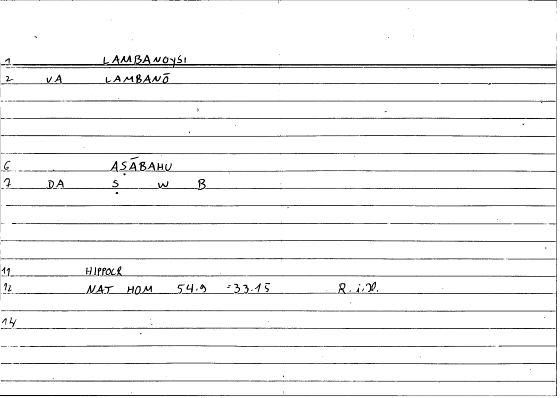 1 LAMBANOYSI
2 VA LAMBANŌ
6 AṢĀBAHU
7 DA Ṣ W B
11 HIPPOCR
12 NAT HOM 54.9 =33.15 R.i.D.
14